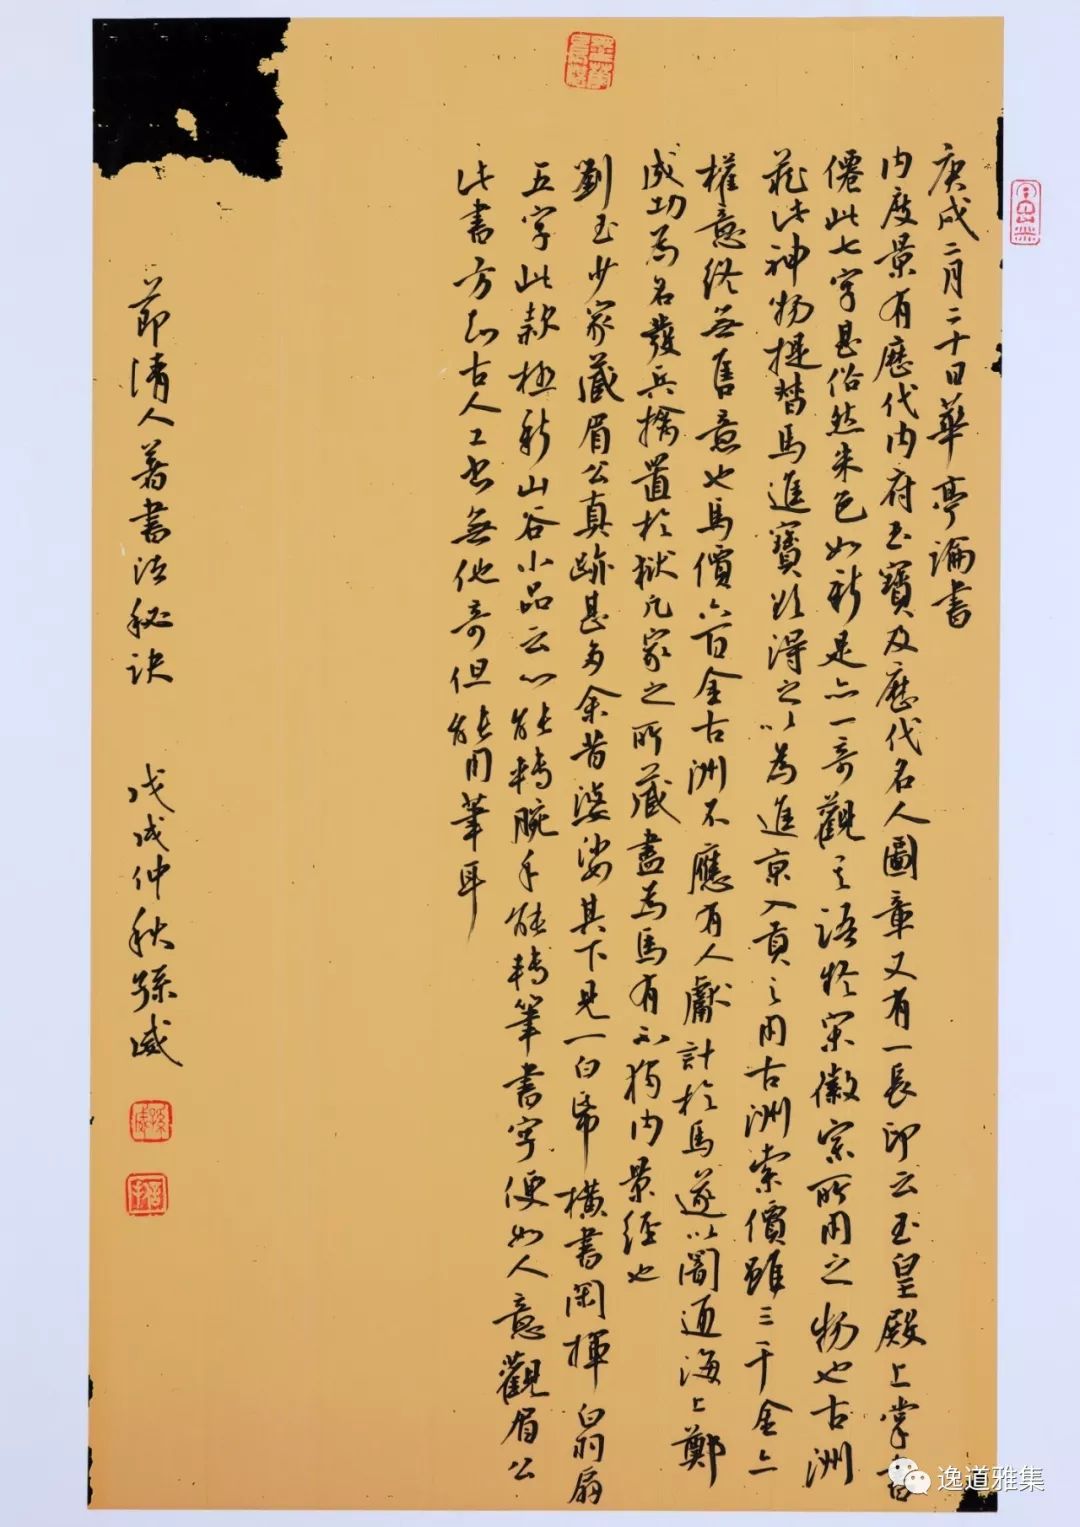 庚戌二月二十日華亭論書
内度景有歷代内府玉寶及歷代名人圖章又有一長印云玉皇殿上掌書
僊此七字甚俗然朱色如新是亦一奇觀之語於宋徽宗所用之物也古洲
此神物提督馬進寶欲得之以為進京入貢之用古洲索價雖三千金亦
權意終無售意也馬價六百金古洲不應有人獻計於馬遂以闇通海上鄭
成功為名發兵擒置於獄凡家之所藏盡為馬有不獨内景經也
劉玉少家藏眉公真跡甚多余昔婆娑其下見一白帋橫書閑揮白羽扇
五字此款極新山谷小品云心能轉腕手能轉筆書字便如人意觀眉公
此書方知古人工書無他奇但能用筆耳
節清人著書法秘訣 戊戌仲秋孫盛
逸道雅集